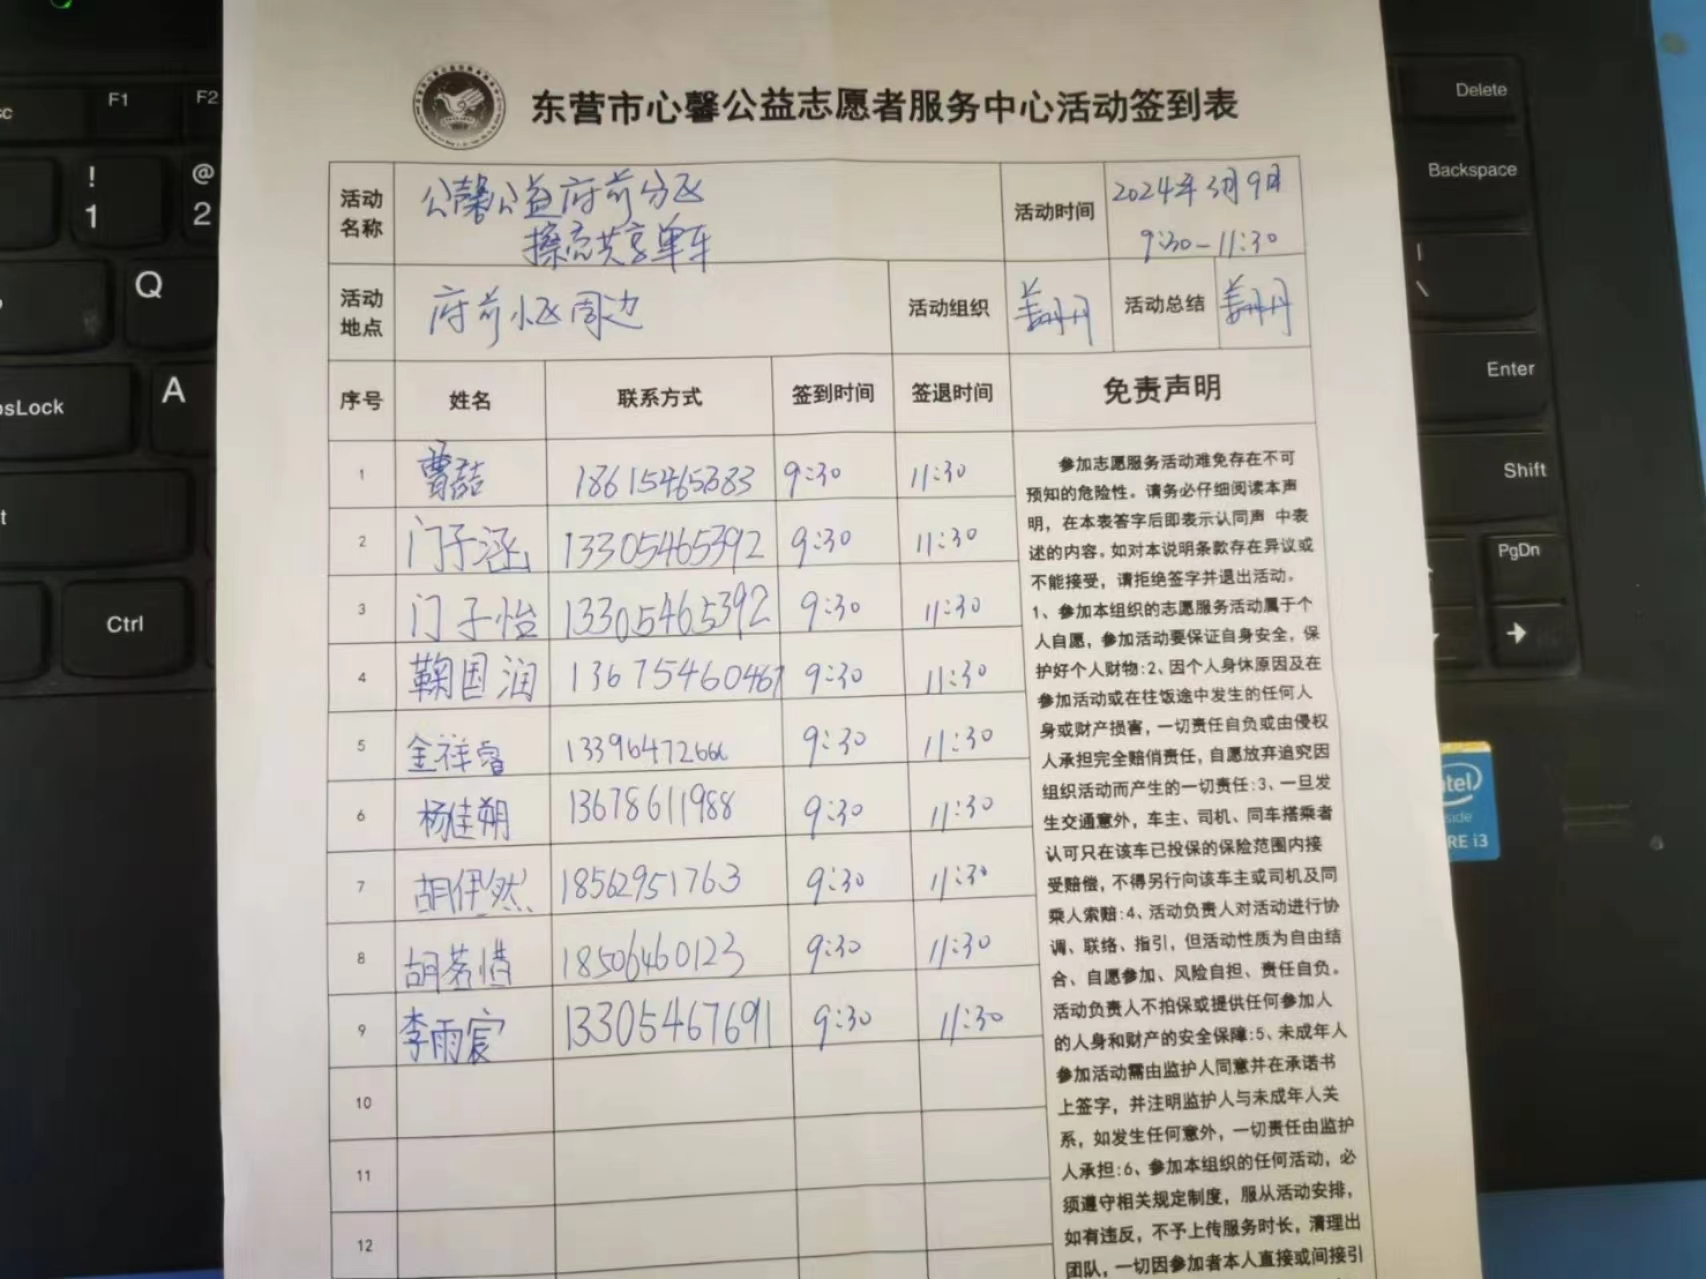 F1
F2
Delete
!
1
@
2
Backspace
Q
A
Enter
Shift
PgDn
Ctrl
东营市心馨公益志愿者服务中心活动签到表
活动名称 公馨公益府前分区 活动时间 2024年3月9日
擦亮共享单车 9:30-11:30
活动地点 府前小区周边 活动组织 姜丹丹 活动总结 姜丹丹
序号 姓名 联系方式 签到时间 签退时间 免责声明
1 曹喆 18615465383 9:30 11:30
2 门子涵 13305465392 9:30 11:30
3 门子怡 13305465392 9:30 11:30
4 鞠国润 13675460467 9:30 11:30
5 金祥睿 13396472666 9:30 11:30
6 杨佳朔 13678611988 9:30 11:30
7 胡伊然 18562951763 9:30 11:30
8 胡茗惜 18506460123 9:30 11:30
9 李雨宸 13305467691 9:30 11:30
10
11
12
参加志愿服务活动难免存在不可
预知的危险性。请务必仔细阅读本声
明，在本表答字后即表示认同声 中表
述的内容，如对本说明条款存在异议或
不能接受，请拒绝签字并退出活动。
1、参加本组织的志愿服务活动属于个
人自愿，参加活动要保证自身安全，保
护好个人财物:2、因个人身休原因及在
参加活动或在往饭途中发生的任何人
身或财产损害，一切责任自负或由侵权
人承担完全赔俏责任，自愿放弃追究因
组织活动而产生的一切责任:3、一旦发
生交通意外，车主、司机、同车搭乘者
认可只在该车已投保的保险范围内接
受赔偿，不得另行向该车主或司机及同
乘人索赔:4、活动负责人对活动进行协
调、联络、指引，但活动性质为自由结
合、自愿参加、风险自担、责任自负。
活动负责人不拍保或提供任何参加人
的人身和财产的安全保障:5、未成年人
参加活动需由监护人同意并在承诺书
上签字，并注明监护人与未成年人关
系，如发生任何意外，一切责任由监护
人承担:6、参加本组织的任何活动，必
须遵守相关规定制度，服从活动安排，
如有违反，不予上传服务时长，清理出
团队，一切因参加者本人直接或间接引